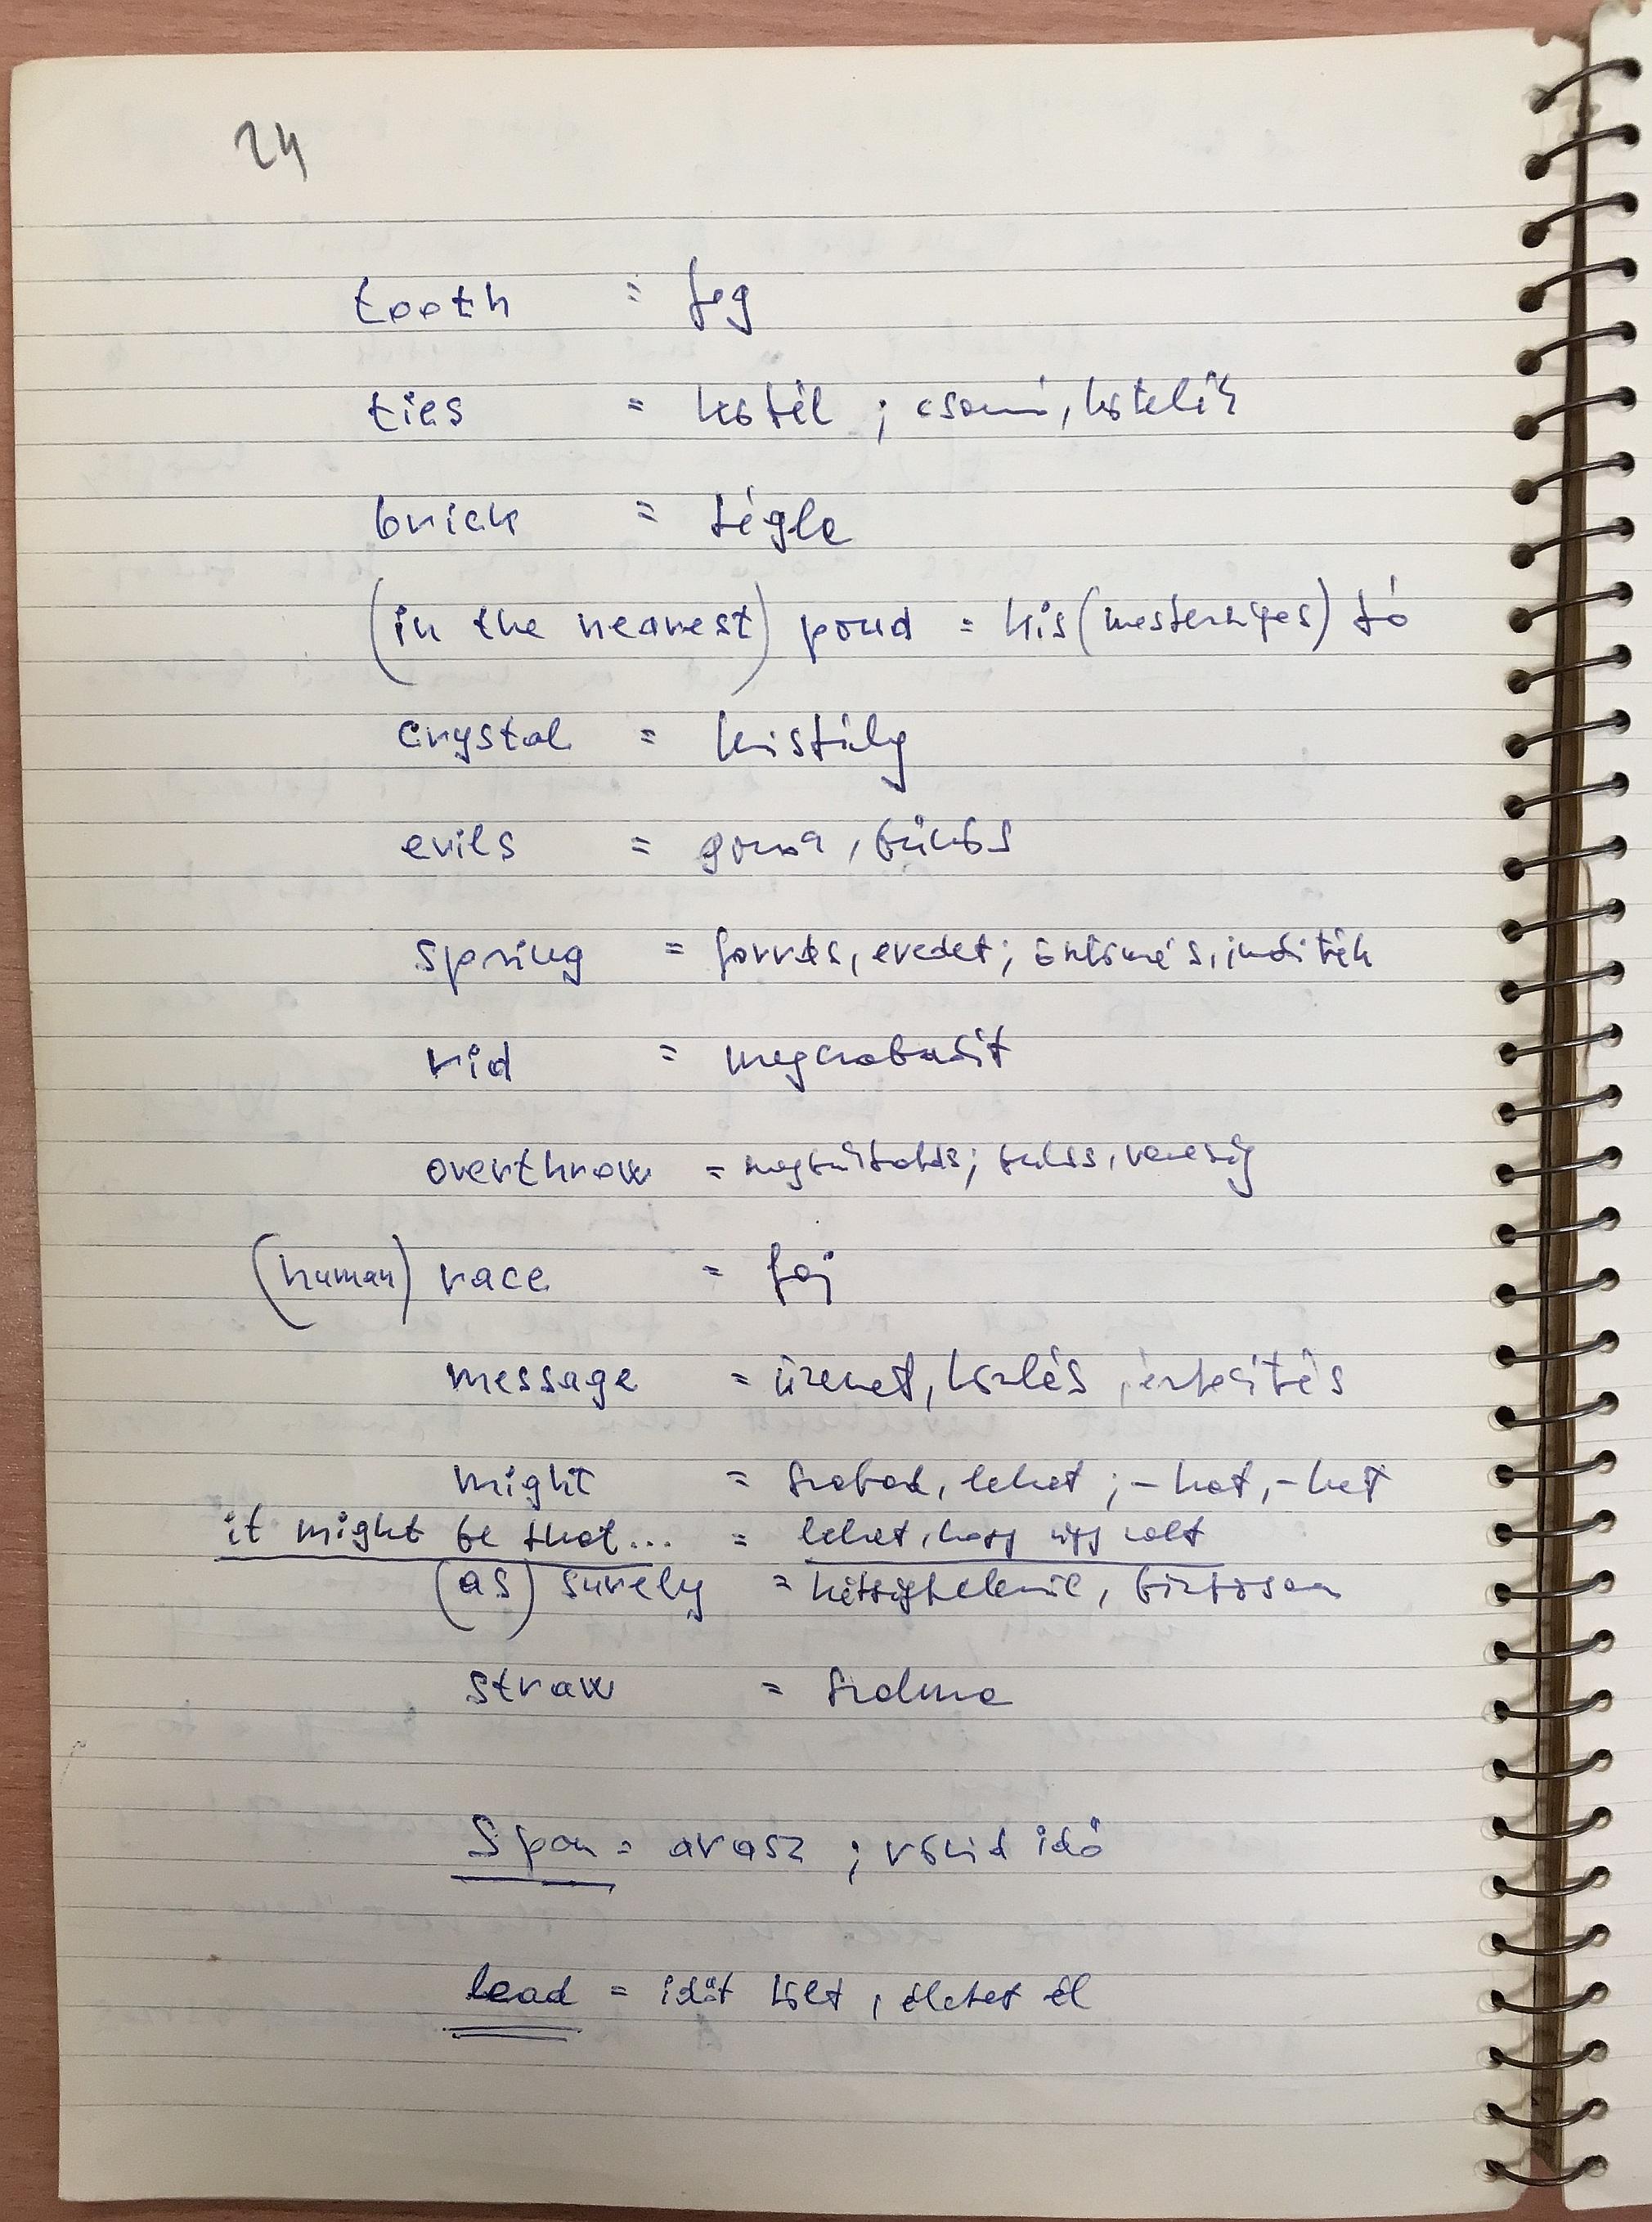 24
tooth = fog
ties = kötél ; csomó, kötelék
brick = tégla
(in the nearest) pond = kis (mesterséges) tó
crystal = kristály
evils = gonosz, bűnös
spring = forrás, eredet; ösztönzés, indíték
rid = megszabadít
overthrow = megbuktatás; bukás, vereség
(human) race = faj
message = üzenet, közlés, értesítés
might = szabad, lehet ; -hat, -het
it might be that... = lehet, hogy úgy volt
(as) surely = kétségtelenül, biztosan
straw = szalma
Span = arasz ; rövid idő
lead = időt tölt, életet él